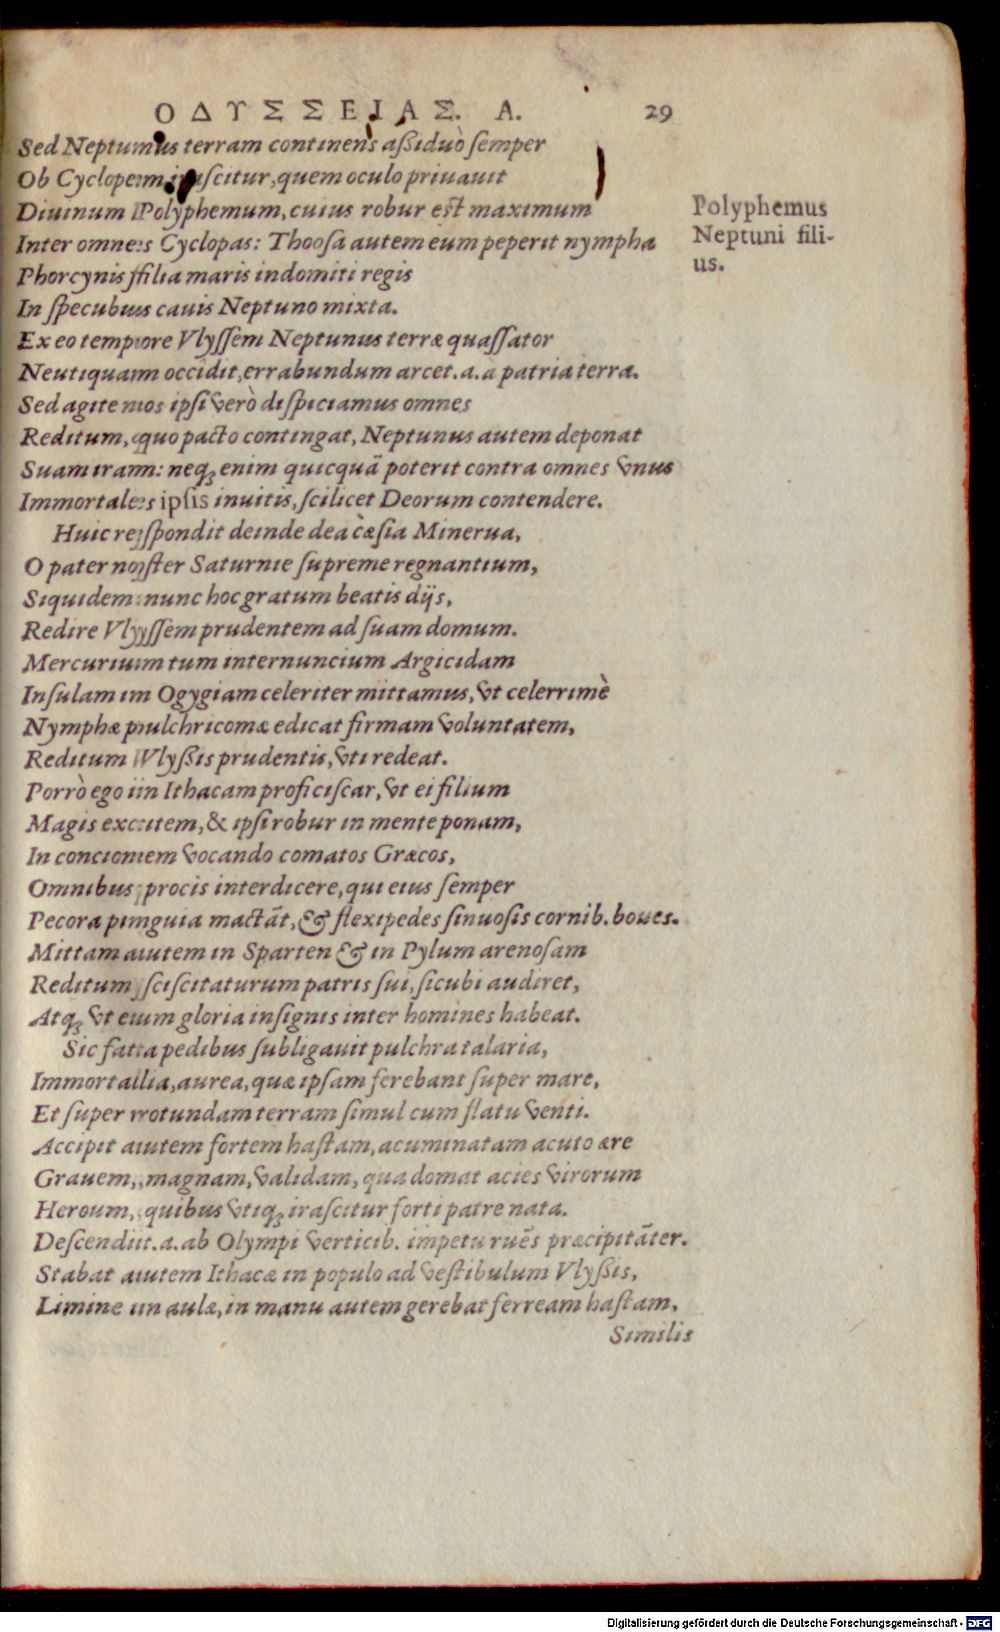 ΟΔΥΣΣΕΙΑΣ. Α. 29
Sed Neptunus terram continens aßiduò ſemper
Ob Cyclopem iraſcitur, quem oculo priuauit
Diuinum Polyphemum, cuius robur eſt maximum
Inter omnes Cyclopas: Thooſa autem eum peperit nympha
Phorcynis filia maris indomiti regis
In ſpecubus cauis Neptuno mixta.
Ex eo tempore Vlyſſem Neptunus terræ quaſſator
Neutiquam occidit, errabundum arcet .a. à patria terra.
Sed agite nos ipſi verò diſpiciamus omnes
Reditum, quo pacto contingat, Neptunus autem deponat
Suam iram: neqꝫ enim quicquā poterit contra omnes vnus
Immortales ipſis inuitis, ſcilicet Deorum contendere.
Huic reſpondit deinde dea cæſia Minerua,
O pater noſter Saturnie ſupreme regnantium,
Siquidem nunc hoc gratum beatis dijs,
Redire Vlyſſem prudentem ad ſuam domum.
Mercurium tum internuncium Argicidam
Inſulam in Ogygiam celeriter mittamus, vt celerrimè
Nymphæ pulchricomæ edicat firmam voluntatem,
Reditum Vlyßis prudentis, vti redeat.
Porrò ego in Ithacam proficiſcar, vt ei filium
Magis excitem, & ipſi robur in mente ponam,
In concionem vocando comatos Græcos,
Omnibus procis interdicere, qui eius ſemper
Pecora pinguia mactāt, & flexipedes ſinuoſis cornib. boues.
Mittam autem in Sparten & in Pylum arenoſam
Reditum ſciſcitaturum patris ſui, ſicubi audiret,
Atqꝫ vt eum gloria inſignis inter homines habeat.
Sic fata pedibus ſubligauit pulchra talaria,
Immortalia, aurea, quæ ipſam ferebant ſuper mare,
Et ſuper rotundam terram ſimul cum flatu venti.
Accipit autem fortem haſtam, acuminatam acuto ære
Grauem, magnam, validam, qua domat acies virorum
Heroum, quibus vtiqꝫ iraſcitur forti patre nata.
Deſcendit .a. ab Olympi verticib. impetu ruēs præcipitāter.
Stabat autem Ithacæ in populo ad veſtibulum Vlyßis,
Limine in aulæ, in manu autem gerebat ferream haſtam,
Similis
Polyphemus
Neptuni fili-
us.
Digitalisierung gefördert durch die Deutsche Forschungsgemeinschaft - DFG